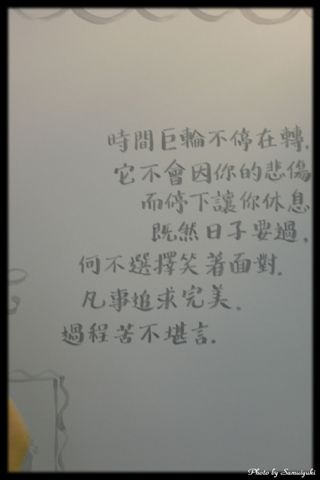 時間巨輪不停在轉.
它不會因你的悲傷
而停下讓你休息
既然日子要過.
何不選擇笑着面對.
凡事追求完美.
過程苦不堪言.
Photo by Samuiyuki